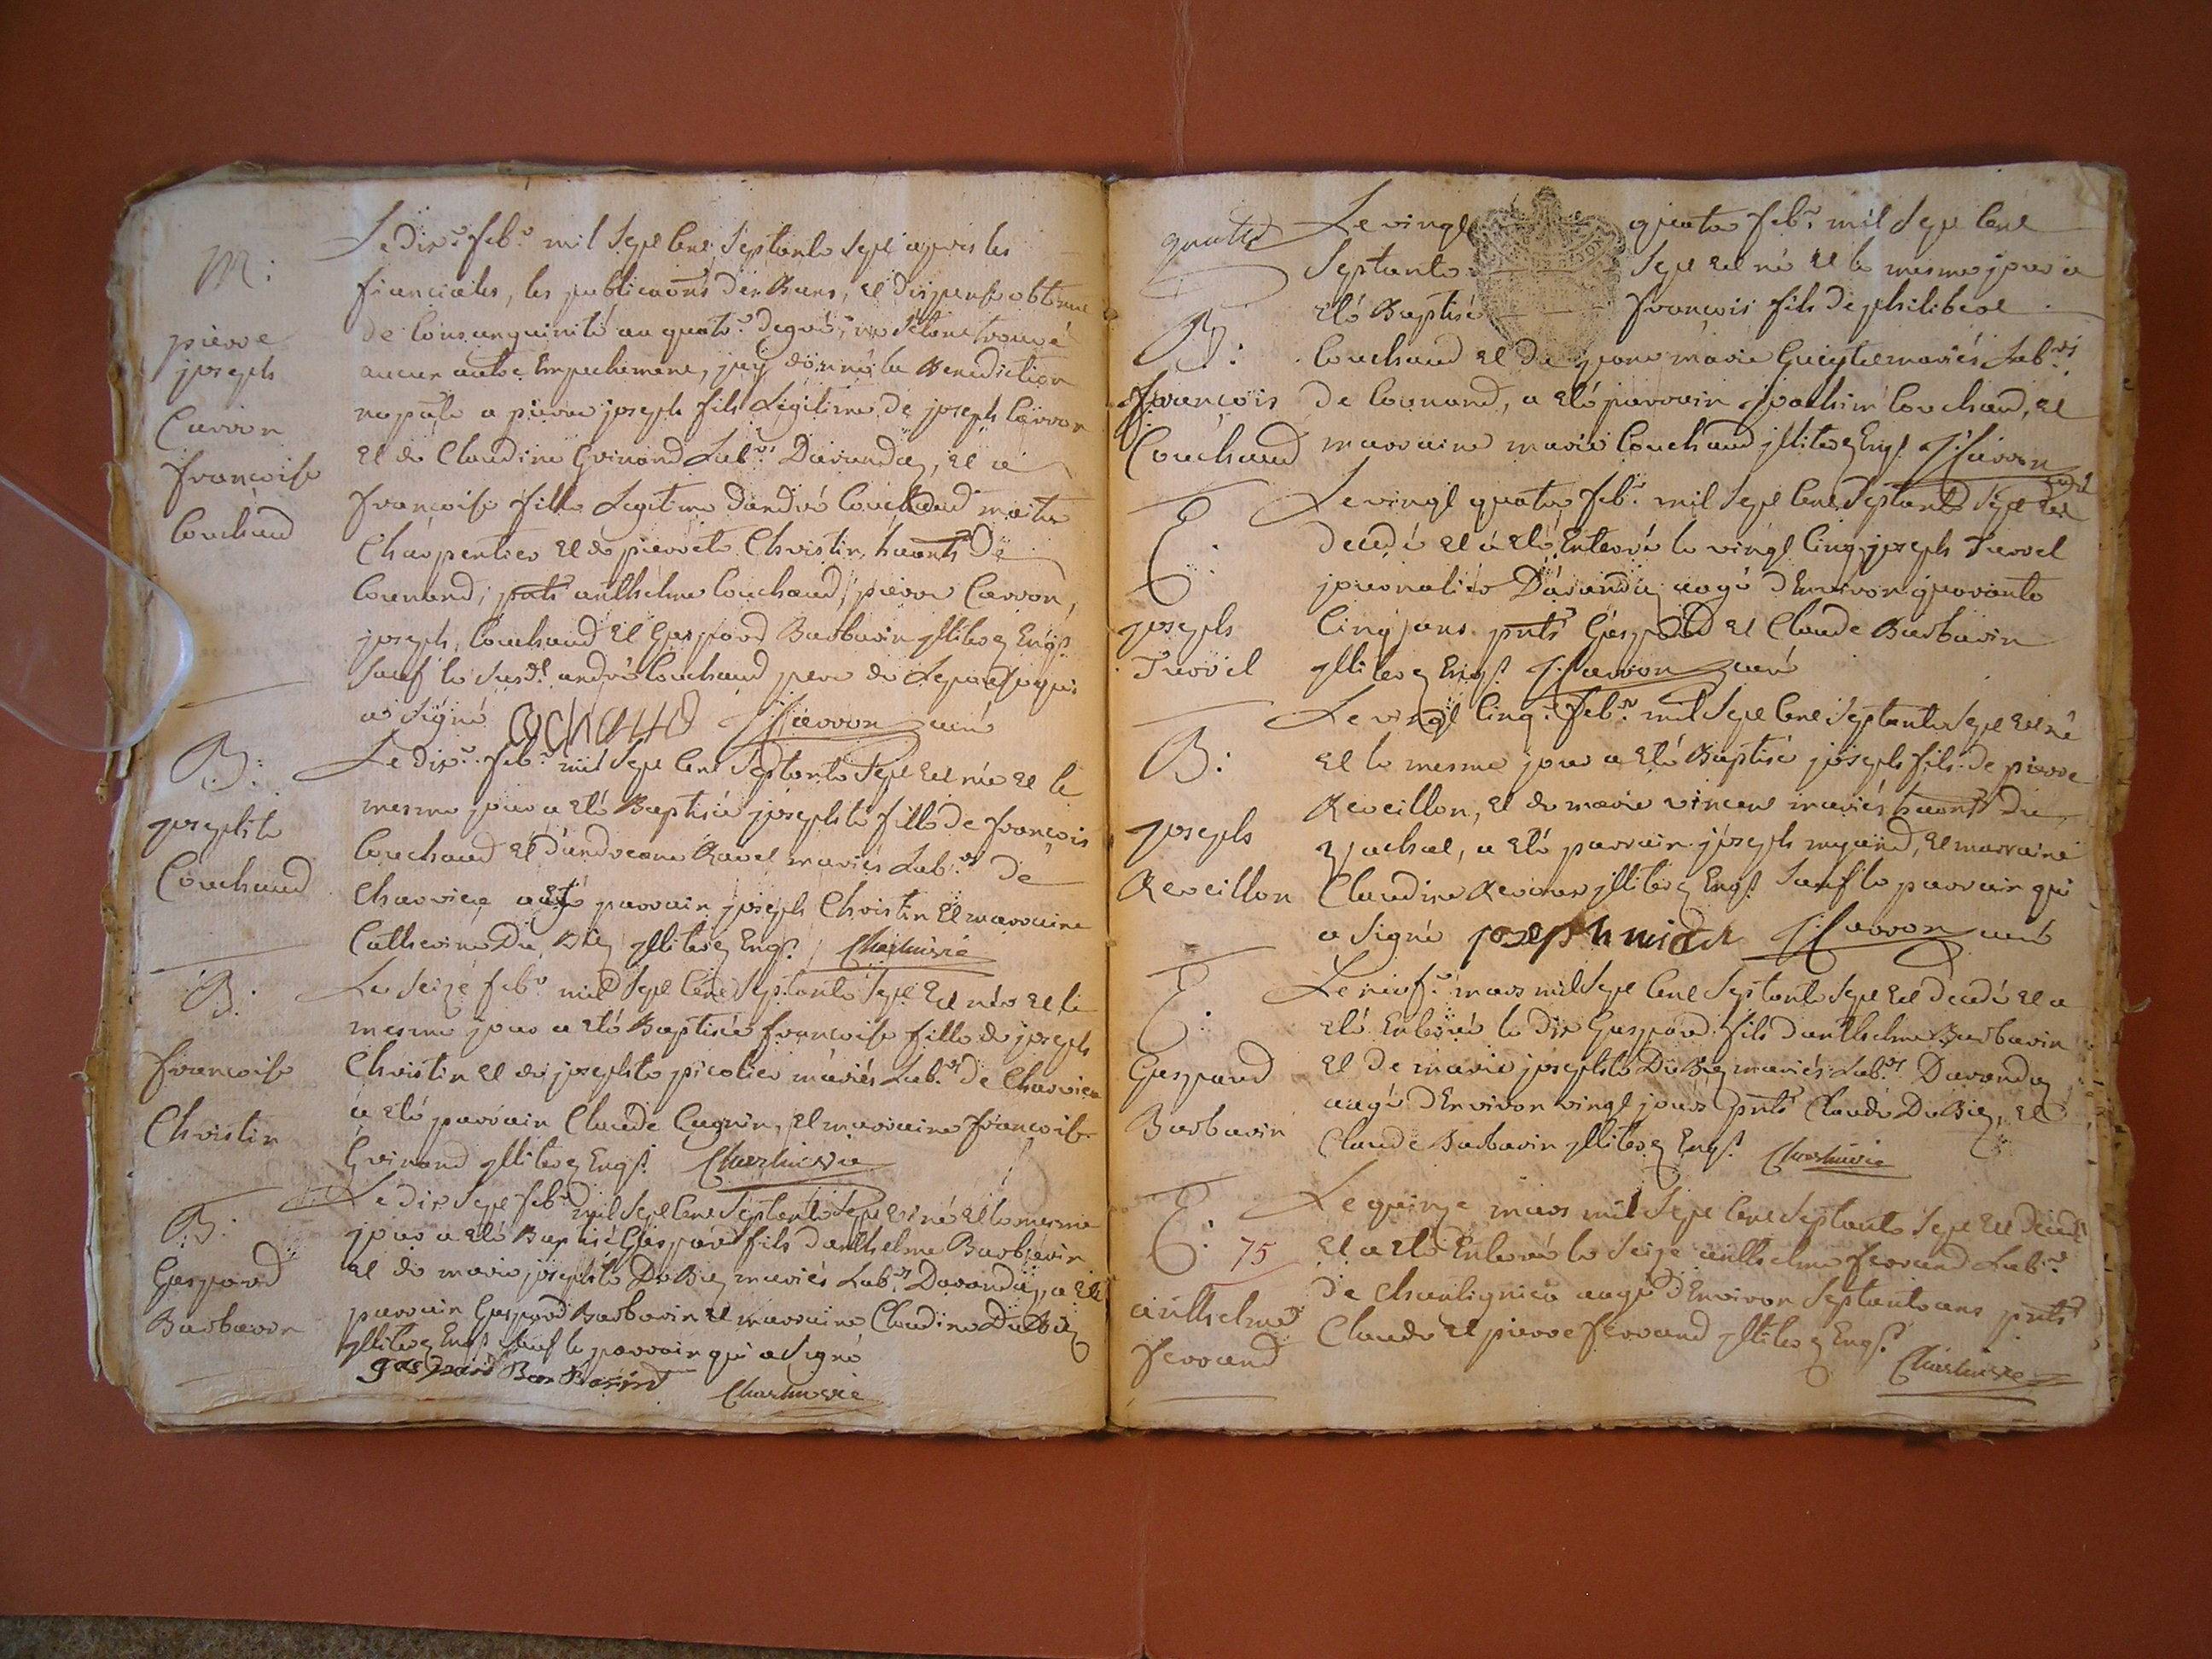 M:
pierre
joseph
Carron
françoise
Couchaud
Le dix.e feb.r mil Sept Cent Septante Sept apres les
fianciales, les publicaõns des Bans, et dispense obtenue
de Consanguinité au quatr.e degré, no Sétant trouvé
aucun autre Empechement, jay donné la Benediction
nup̃ale a pierre joseph fils Légitime de joseph Carron
et de Claudine Guinand Lab.rs Davanda, et a
françoise fille Legitime Dandré Couchaud maitre
Charpentier et de pierrete Christin, haants De
Counand, pnts anthelme Couchaud, pierre Carron,
joseph Couchaud et Gaspard Barbarin jlliterez Enqs
Sauf le Susd.t andré Couchaud pere de Lepouse qui
a Signé COCHAUD J Carron curé
B:
josephte
Couchaud
Le dix.e feb.r mil Sept Cent Septante Sept Est née et le
mesme jour a eté Baptisée josephte fille de françois
Couchaud et Dandreane Ravel mariés Lab.rs de
Charvieu a eté parrain joseph Christin et marraine
Catherine Du Biez jlliterez Enqs
B:
françoise
Christin
Le Seize feb.r mil Sept Cent Septante Sept Est née et le
mesme jour a eté Baptisée françoise fille de joseph
Christin et de josephte picolier mariés Lab.rs de Charvieu
a eté parrain Claude Cugnin, et marraine françoise
Guinand jlliterez Enqs
B:
Gaspard
Barbarin
Le dix Sept feb.r mil Sept Cent Septante Sept Est né et le mesme
jour a eté Baptisé Gaspard fils danthelme Barbarin
et de marie josephte Du Biez mariés Lab.rs Davanda, a eté
parrain Gaspard Barbarin et marraine Claudine Du Biez
jlliterez Enqs Sauf le parrain qui a Signé
gaspard Bar Barin
quatre
B:
françois
Couchaud
Le vingt quatre feb.r mil Sept Cent
Septante Sept est né et le mesme jour a
eté Baptisé françois fils de philibert
Couchaud et de marie mariés Lab.rs
de Counand, a eté parrain joachim Couchaud, et
marraine marie Couchaud jlliterez Enqs J Carron
curé
E:
joseph
Le vingt quatre feb.r mil Sept Cent Septante Sept Est
decedé et a eté Enterré le vingt Cinq joseph
journalier Davanda aagé dEnviron quarante
Cinq ans pnts Gaspard et Claude Barbarin
jlliterez Enqs J Carron curé
B:
joseph
Reveillon
Le vingt Cinq.e feb.r mil Sept Cent Septante Sept Est né
et le mesme jour a eté Baptisé joseph fils de pierre
Reveillon, et de marie vincent mariés haants du
a eté parrain joseph, et marraine
Claudine jlliterez Enqs Sauf le parrain qui
a Signé joseph J Carron curé
E:
Gaspard
Barbarin
Le neuf.e mars mil Sept Cent Septante Sept Est decedé et a
eté Enterré le dix Gaspard fils danthelme Barbarin
et de marie josephte Du Biez mariés Lab.rs Davanda
aagé dEnviron vingt jours pnts Claude Du Biez, et
Claude Barbarin jlliterez Enqs
E: 75
anthelme
ferrand
Le quinze mars mil Sept Cent Septante Sept Est decedé
et a eté Enterré le Seize anthelme ferrand Lab.r
de Chantignieu aagé dEnviron Septante ans pnts
Claude et pierre ferrand jlliterez Enqs